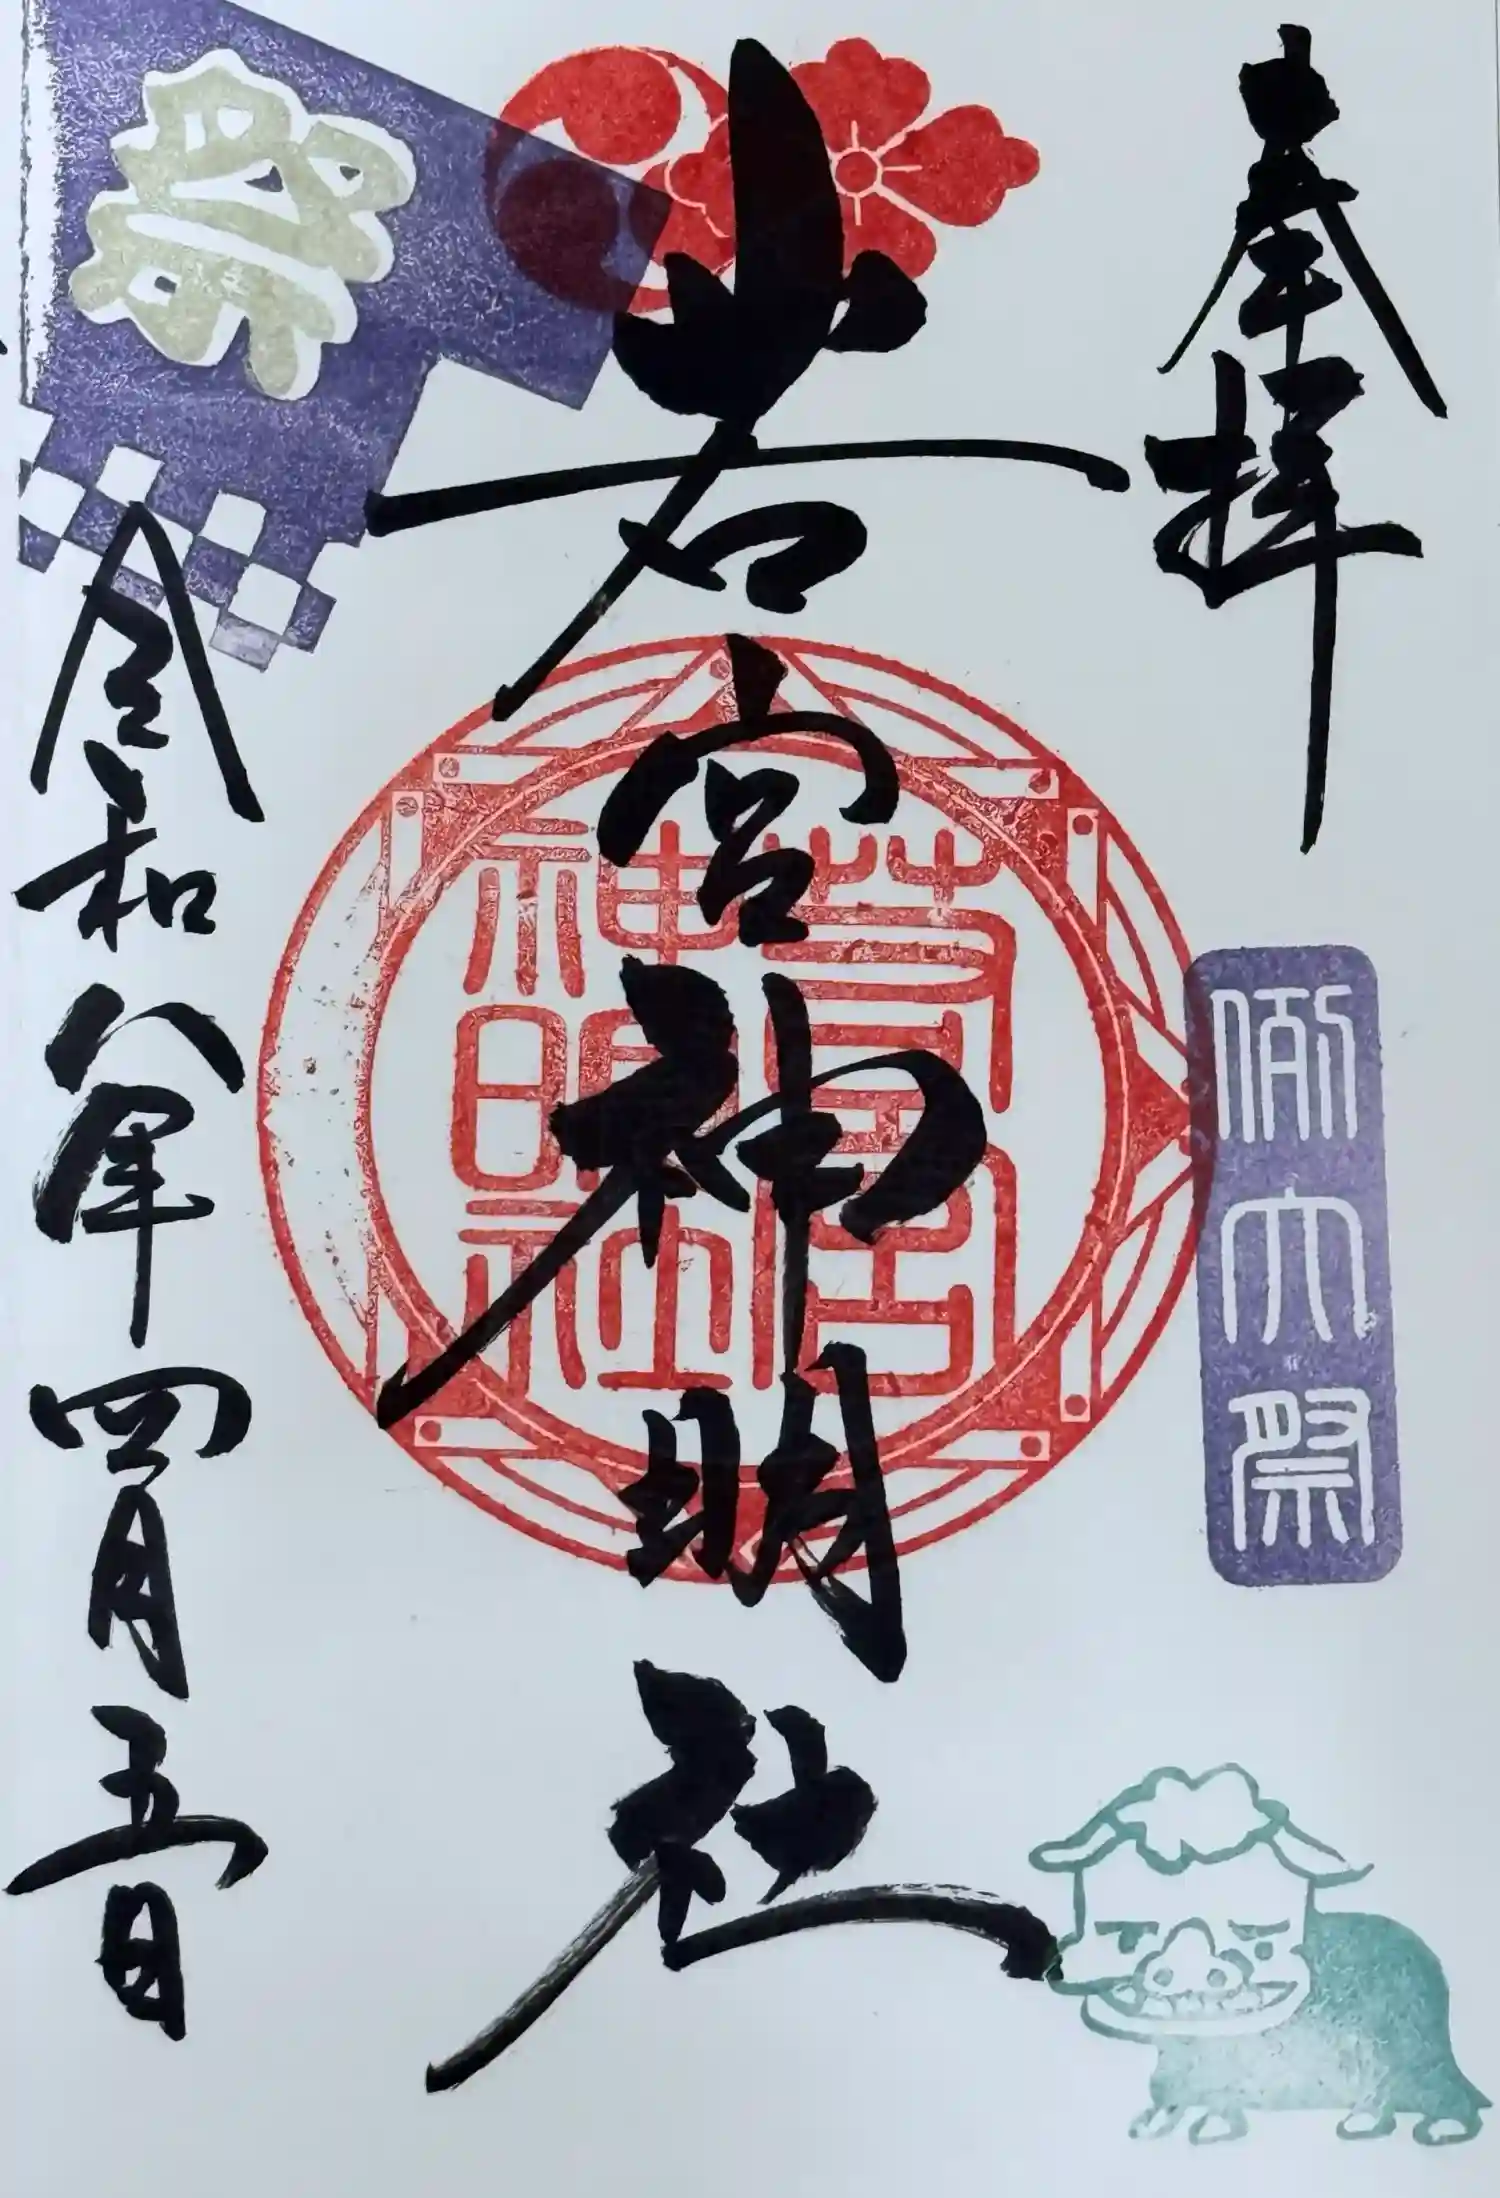 奉拝
例大祭
若宮神明社
若宮
神明社
祭
令和八年四月五日